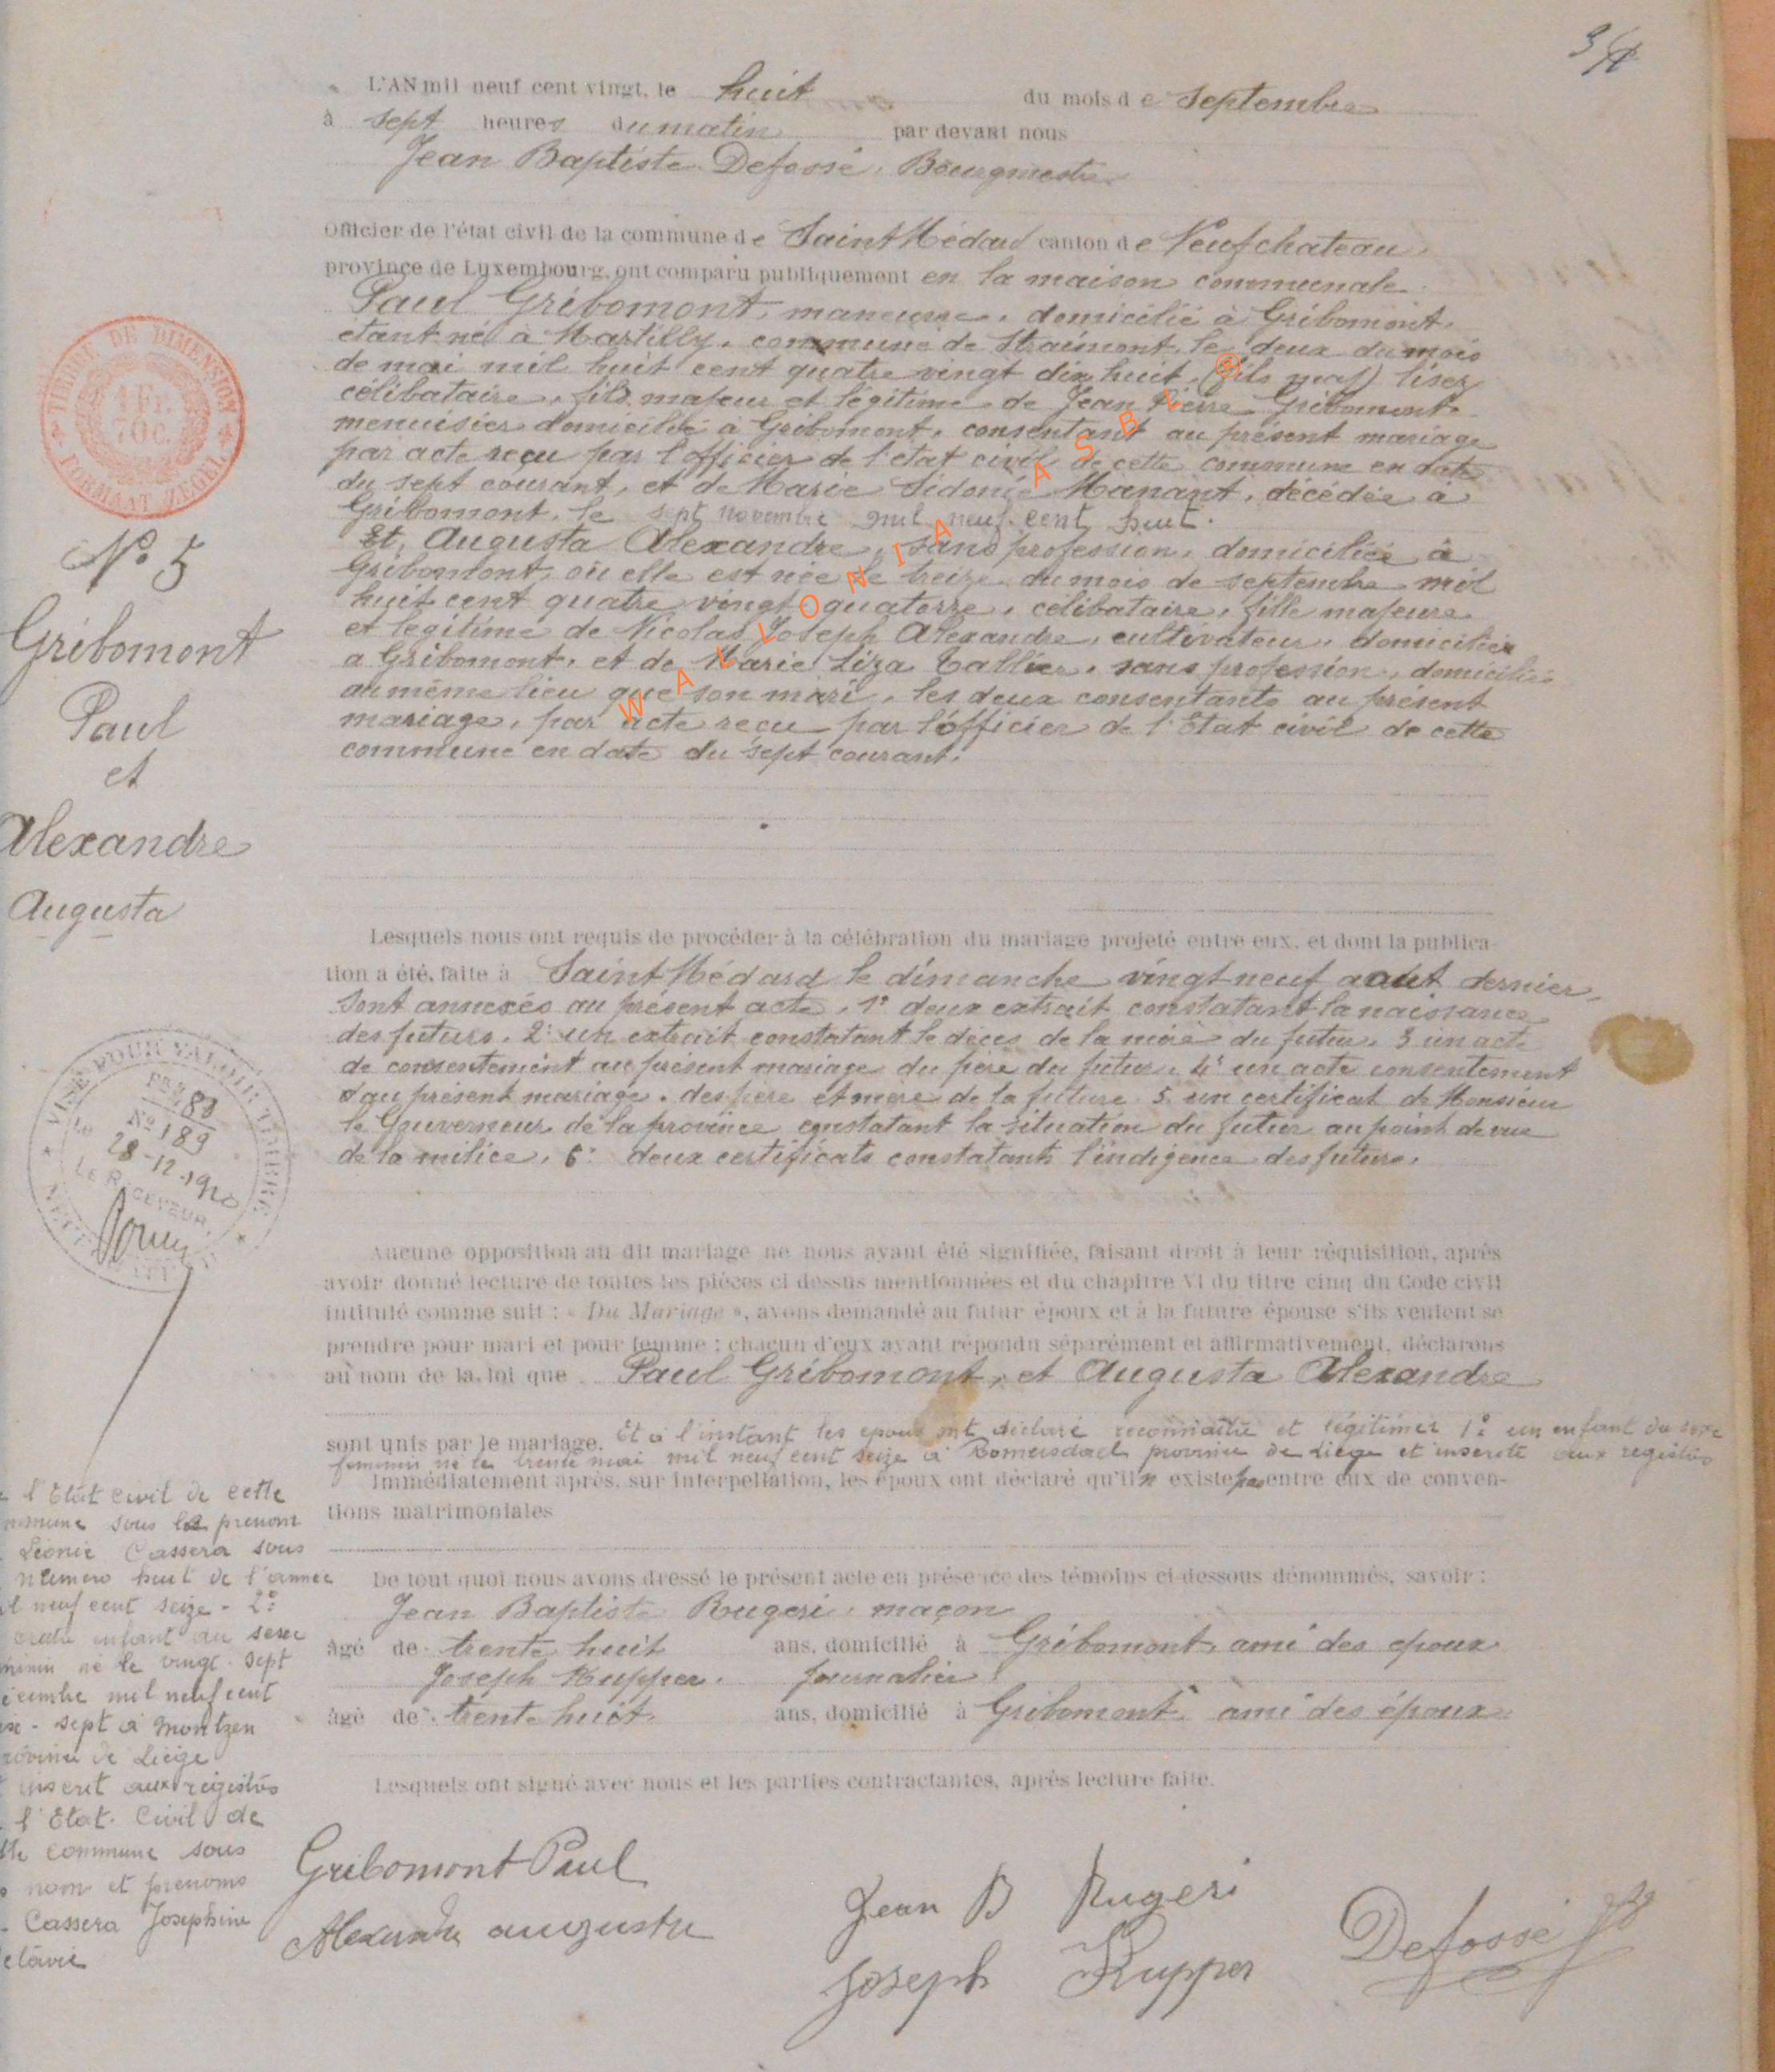 3/4
L'AN mil neuf cent vingt, le huit du mois de septembre
à sept heures du matin par devant nous
Jean Baptiste Defossé, Bourgmestre
Officier de l'état civil de la commune de Saint Médard canton de Neufchateau,
province de Luxembourg, ont comparu publiquement en la maison communale
Paul Gribomont, manœuvre, domicilié à Gribomont,
etant né à Martilly, commune de Straimont, le deux du mois
de mai mil huit cent quatre vingt dix huit, (fils maj) lisez
célibataire, fils majeur et légitime de Jean Pierre Gribomont
menuisier domicilié à Gribomont, consentant au présent mariage
par acte reçu par l'officier de l'état civil de cette commune en date
du sept courant, et de Marie Sidonie Manant, décédée à
Gribomont, le sept novembre mil neuf cent huit.
Et, Augusta Alexandre, sans profession, domiciliée à
Gribomont, où elle est née le treize du mois de septembre mil
huit cent quatre vingt quatorze, célibataire, fille majeure
et legitime de Nicolas Joseph Alexandre, cultivateur, domicilier
a Gribomont, et de Marie Liza Tallier, sans profession, domiciliée
au même lieu que son mari, les deux consentants au présent
mariage, par acte reçu par l'officier de l'Etat civil de cette
commune en date du sept courant.
WALLONIA ASBL ®
N° 5
Gribomont
Paul
et
Alexandre
Augusta
TIMBRE DE DIMENSION
1 Fr.
70 c.
FORMAAT ZEGEL
Lesquels nous ont requis de procéder à la célébration du mariage projeté entre eux, et dont la publica-
tion a été, faite à Saint Médard le dimanche vingt neuf aout dernier,
sont annexés au présent acte, 1° deux extrait constatant la naissance
des futurs, 2° un extrait constatant le déces de la mère du futur, 3 un acte
de consentement au présent mariage du père du futur, 4° un acte consentement
au présent mariage, des père et mère de la future 5. un certificat de Monsieur
le Gouverneur de la province constatant la situation du futur au point de vue
de la milice, 6° deux certificats constatants l'indigence des futurs.
VISE POUR VALOIR TIMBRE
N° 189
le 28-12-1920
LE RECEVEUR,
Aucune opposition au dit mariage ne nous ayant été signifiée, faisant droit à leur réquisition, après
avoir donné lecture de toutes les pièces ci dessus mentionnées et du chapitre VI du titre cinq du Code civil
intitulé comme suit : « Du Mariage », avons demandé au futur époux et à la future épouse s'ils veulent se
prendre pour mari et pour femme ; chacun d'eux ayant répondu séparément et affirmativement, déclarons
au nom de la loi que Paul Gribomont, et Augusta Alexandre
sont unis par le mariage. Et à l'instant les epoux ont déclaré reconnaître et légitimer 1° un enfant du sexe
feminin né le trente mai mil neuf cent seize à province de Liège et inscrite aux registres
Immédiatement après, sur interpellation, les époux ont déclaré qu'il n'existe pas entre eux de conven-
tions matrimoniales
l'Etat civil de cette
commune sous le prenom
Léonie Cassera sous
numero huit de l'année
mil neuf cent seize - 2°
enfant du sexe
feminin né le vingt-sept
mil neuf cent
sept à Montzen
province de Liège
inscrit aux registres
l'Etat Civil de
commune sous
nom et prenoms
Cassera Josephine
De tout quoi nous avons dressé le présent acte en présence des témoins ci-dessous dénommés, savoir :
Jean Baptiste Rugeri, maçon
âgé de trente huit ans, domicilié à Gribomont, ami des epoux
Joseph Kupper, journalier
âgé de trente huit ans, domicilié à Gribomont ami des époux
Lesquels ont signé avec nous et les parties contractantes, après lecture faite.
Gribomont Paul
Alexandre augusta
Jean B Rugeri
Joseph Kupper
Defossé JB